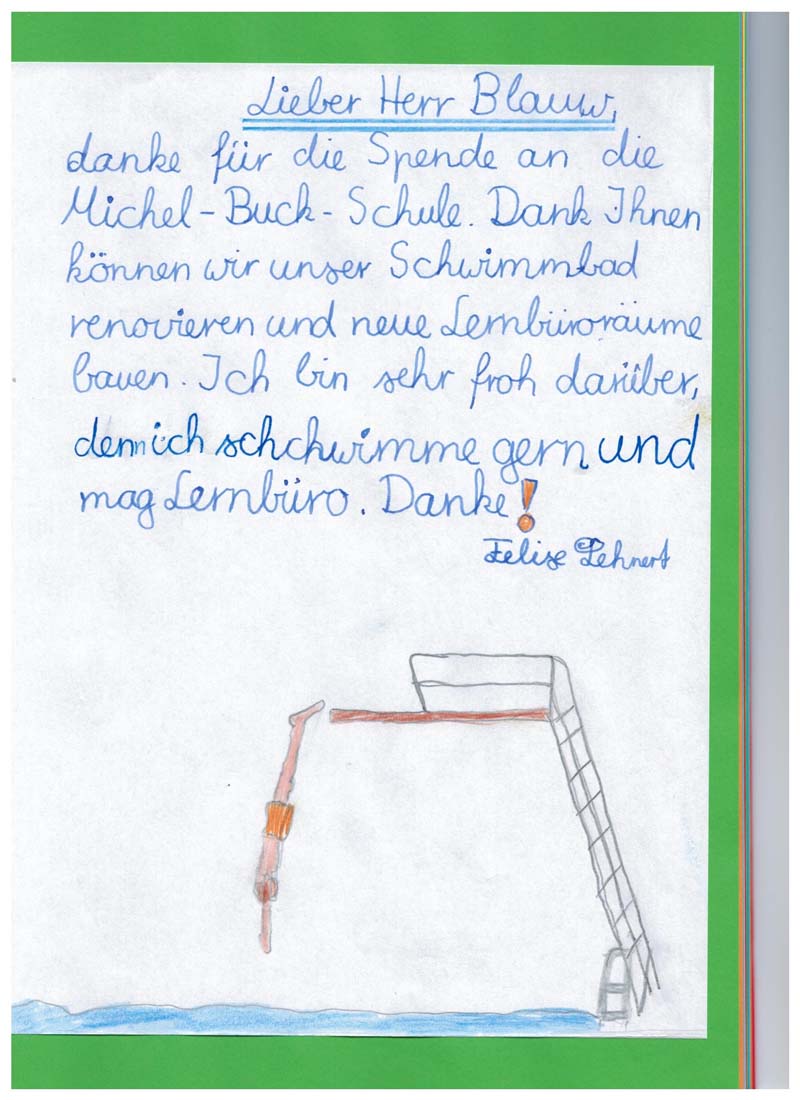 Lieber Herr Blauw,
danke für die Spende an die
Michel-Buck-Schule. Dank Ihnen
können wir unser Schwimmbad
renovieren und neue Lernbüroräume
bauen. Ich bin sehr froh darüber,
denn ich schchwimme gern und
mag Lernbüro. Danke!
Felise Lehnert